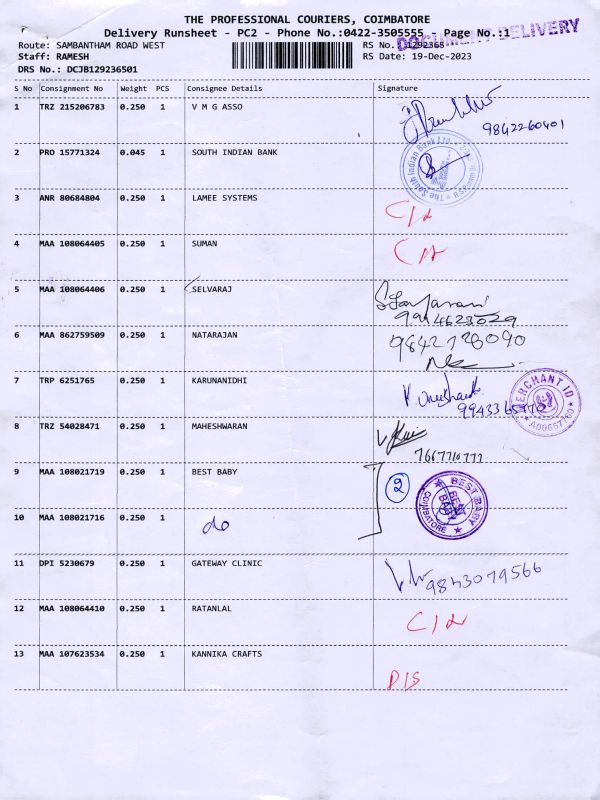 THE PROFESSIONAL COURIERS, COIMBATORE
Delivery Runsheet - PC2 - Phone No.:0422-3505555 - Page No.:1
DOCUMENT DELIVERY
Route: SAMBANTHAM ROAD WEST RS No.: 1292365
Staff: RAMESH RS Date: 19-Dec-2023
DRS No.: DCJB129236501
S No Consignment No Weight PCS Consignee Details Signature
1 TRZ 215206783 0.250 1 V M G ASSO
9842260401
2 PRO 15771324 0.045 1 SOUTH INDIAN BANK
The South Indian Bank Ltd.
3 ANR 80684804 0.250 1 LAMEE SYSTEMS
4 MAA 108064405 0.250 1 SUMAN
5 MAA 108064406 0.250 1 SELVARAJ
9944623029
6 MAA 862759509 0.250 1 NATARAJAN
9842728090
7 TRP 6251765 0.250 1 KARUNANIDHI
MERCHANT ID
8 TRZ 54028471 0.250 1 MAHESHWARAN
7667710777
9 MAA 108021719 0.250 1 BEST BABY
2
BEST BABY
BEST BABY
COIMBATORE
10 MAA 108021716 0.250 1 do
11 DPI 5230679 0.250 1 GATEWAY CLINIC
9843079566
12 MAA 108064410 0.250 1 RATANLAL
13 MAA 107623534 0.250 1 KANNIKA CRAFTS
D/S